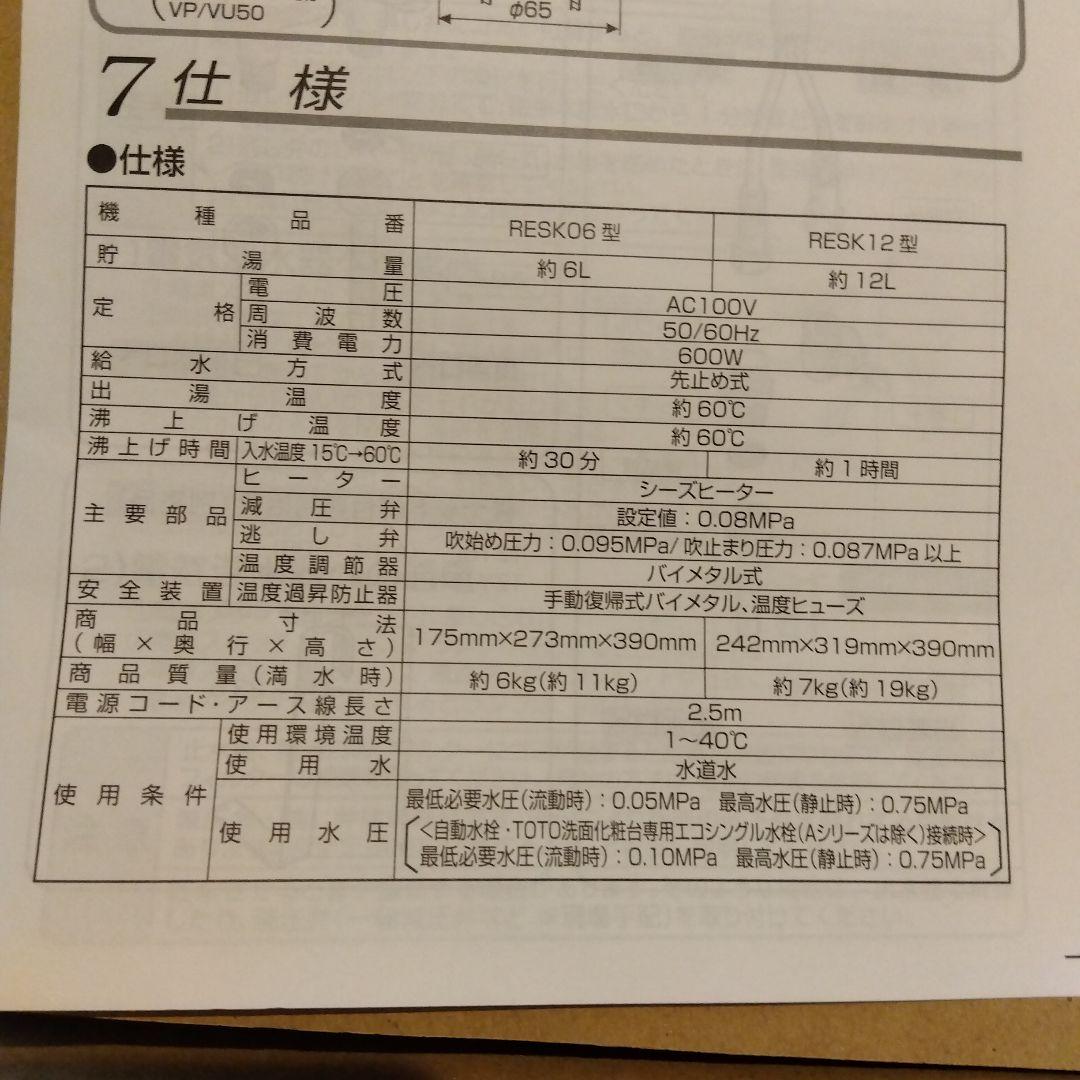 VP/VU50
φ65
7 仕 様
●仕様
機種品番 RESK06型 RESK12型
貯湯量 約6L 約12L
定格 電圧 AC100V
周波数 50/60Hz
消費電力 600W
給水方式 先止め式
出湯温度 約60℃
沸上げ温度 約60℃
沸上げ時間 入水温度15℃→60℃ 約30分 約1時間
主要部品 ヒーター シーズヒーター
減圧弁 設定値：0.08MPa
逃し弁 吹始め圧力：0.095MPa/吹止まり圧力：0.087MPa以上
温度調節器 バイメタル式
安全装置 温度過昇防止器 手動復帰式バイメタル、温度ヒューズ
商品寸法
(幅×奥行×高さ) 175mm×273mm×390mm 242mm×319mm×390mm
商品質量(満水時) 約6kg(約11kg) 約7kg(約19kg)
電源コード・アース線長さ 2.5m
使用条件 使用環境温度 1～40℃
使用水 水道水
使用水圧 最低必要水圧(流動時)：0.05MPa 最高水圧(静止時)：0.75MPa
<自動水栓・TOTO洗面化粧台専用エコシングル水栓(Aシリーズは除く)接続時>
最低必要水圧(流動時)：0.10MPa 最高水圧(静止時)：0.75MPa